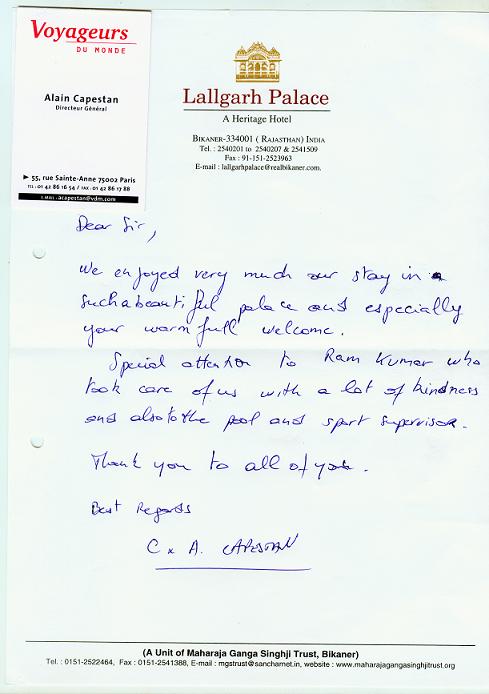 Voyageurs
DU MONDE
Alain Capestan
Directeur Général
55, rue Sainte-Anne 75002 Paris
TEL : 01 42 86 16 54 / FAX : 01 42 86 17 88
E.MAIL : acapestan@vdm.com
Lallgarh Palace
A Heritage Hotel
BIKANER-334001 ( RAJASTHAN) INDIA
Tel. : 2540201 to 2540207 & 2541509
Fax : 91-151-2523963
E-mail : lallgarhpalace@realbikaner.com.
Dear Sir,
We enjoyed very much our stay in
such a beautiful palace and especially
your warmfull welcome.
Special attention to Ram Kumar who
took care of us with a lot of kindness
and also to the pool and sport supervisor.
Thank you to all of you.
Best Regards
C x A. CAPESTAN
(A Unit of Maharaja Ganga Singhji Trust, Bikaner)
Tel. : 0151-2522464, Fax : 0151-2541388, E-mail : mgstrust@sancharnet.in, website : www.maharajagangasinghjitrust.org